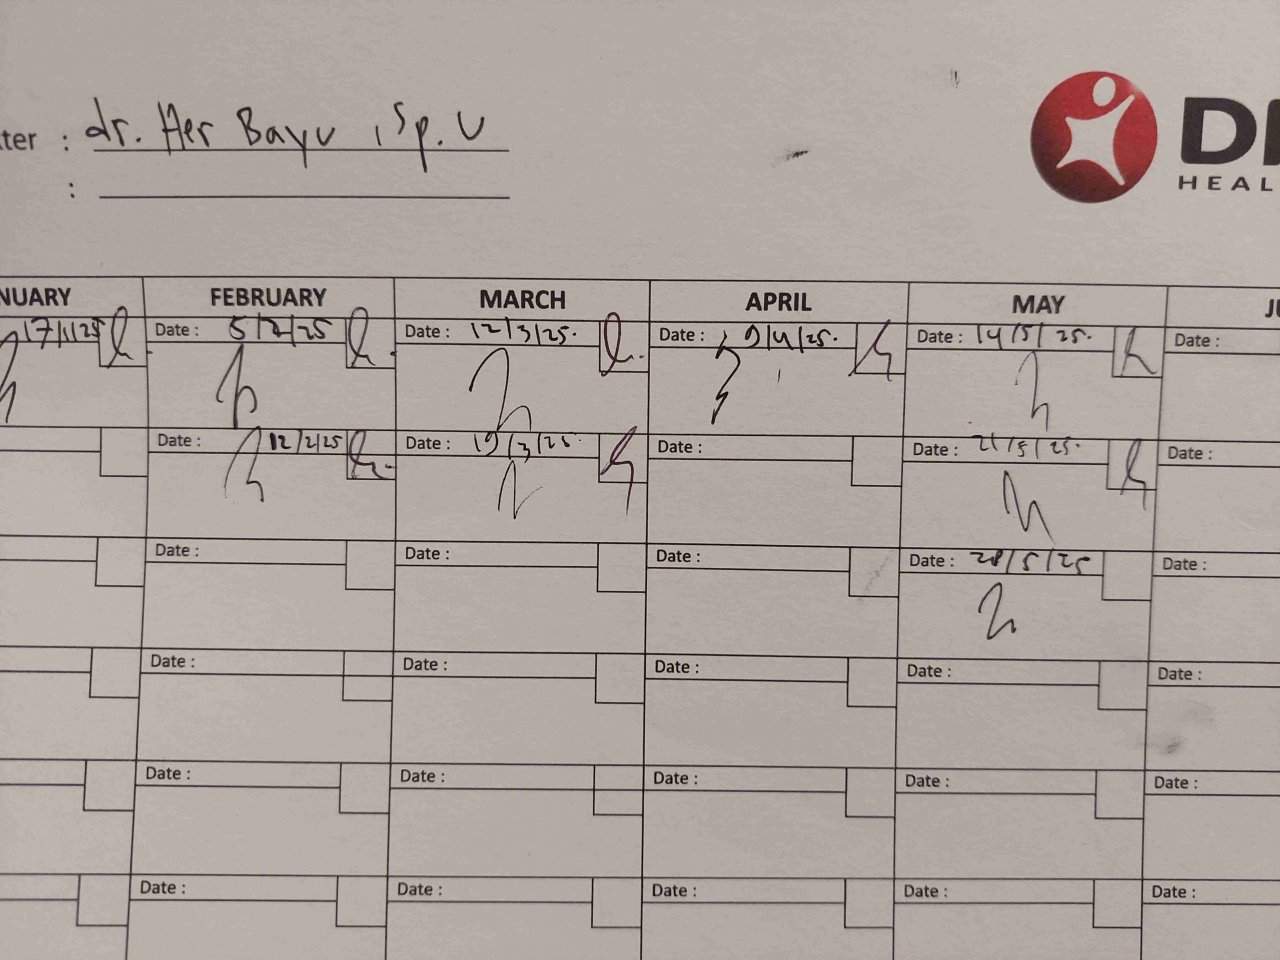 ter : dr. Her Bayu, Sp.U
:
DI
HEAL
NUARY FEBRUARY MARCH APRIL MAY JU
17/1/25 Date : 5/2/25 Date : 12/3/25. Date : 9/4/25. Date : 14/5/25. Date :
Date : 12/2/25 Date : 19/3/25. Date : Date : 21/5/25. Date :
Date : Date : Date : Date : 28/5/25 Date :
Date : Date : Date : Date : Date :
Date : Date : Date : Date : Date :
Date : Date : Date : Date : Date :